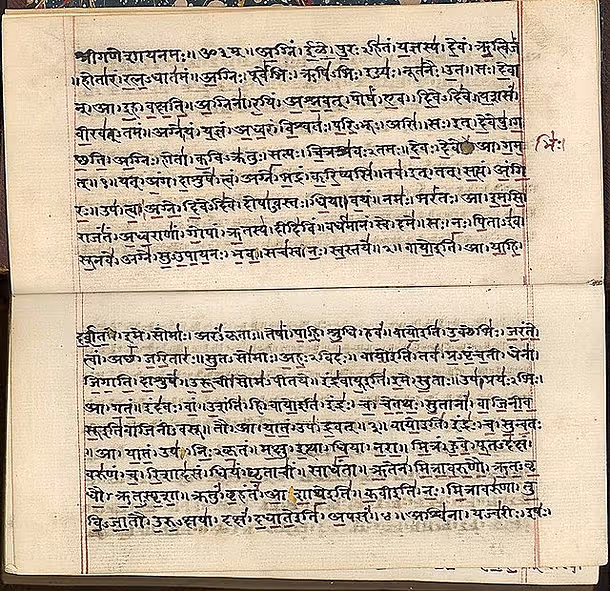 श्रीगणेशायनमः॥ॐ३म्॥अग्निं।ईळे।पुरःऽहितं।यज्ञस्य।देवं।ऋत्विजं
॥होतारं।रत्नऽधातमं॥अग्निः।पूर्वेभिः।ऋषिऽभिः।ईड्यः।नूतनैः।उत॥सः।देवा
न्।आ।इह।वक्षति॥अग्निना।रयिं।अश्नवत्।पोषं।एव।दिवेऽदिवे॥यशसं।
वीरवत्ऽतमं॥अग्ने।यं।यज्ञं।अध्वरं।विश्वतः।परिऽभूः।असि॥सः।इत्।देवेषु।ग
भिः।
च्छति॥अग्निः।होता।कविऽक्रतुः।सत्यः।चित्रश्रवःऽतमः॥देवः।देवे।आ।गम
त्॥१॥यत्।अंग।दाशुषे।त्वं।अग्ने।भद्रं।करिष्यसि॥तव।इत्।तत्।सत्यं।अंगि
रः॥उप।त्वा।अग्ने।दिवेऽदिवे।दोषाऽवस्तः।धिया।वयं॥नमः।भरंतः।आ।इमसि॥
राजंतं।अध्वराणां।गोपां।ऋतस्य।दीदिविं॥वर्धमानं।स्वे।दमे॥सः।नः।पिताऽइव।
सूनवे।अग्ने।सुऽउपायनः।भव॥सचस्व।नः।स्वस्तये॥२॥वायोइति।आ।याहि।
दर्शत।इमे।सोमाः।अरंऽकृताः॥तेषां।पाहि।श्रुधि।हवं॥वायोइति।उक्थेभिः।जरंते।
त्वां।अच्छ।जरितारः॥सुतऽसोमाः।अहःऽविदः॥वायोइति।तव।प्रऽपृंचती।धेना।
जिगाति।दाशुषे॥उरूची।सोमऽपीतये॥इंद्रवायूइति।इमे।सुताः॥उप।प्रयःऽभिः।
आ।गतं॥इंदवः।वां।उशंति।हि॥वायोइति।इंद्रः।च।चेतथः।सुतानां।वाजिनीव
सूइतिवाजिनीऽवसू॥तौ।आ।यातं।उप।द्रवत्॥३॥वायोइति।इंद्रः।च।सुन्वतः
॥आ।यातं।उप।निःऽकृतं॥मक्षु।इत्था।धिया।नरा॥मित्रं।हुवे।पूतऽदक्षं।
वरुणं।च।रिशादसं॥धियं।घृताचीं।साधंता॥ऋतेन।मित्रावरुणौ।ऋतऽवृ
धौ।ऋतऽस्पृशा॥क्रतुं।बृहंतं।आशाथेइति॥कवीइति।नः।मित्रावरुणा।तु
विऽजातौ।उरुऽक्षया॥दक्षं।दधातेइति।अपसं॥४॥अश्विना।यज्वरीः।इषः।